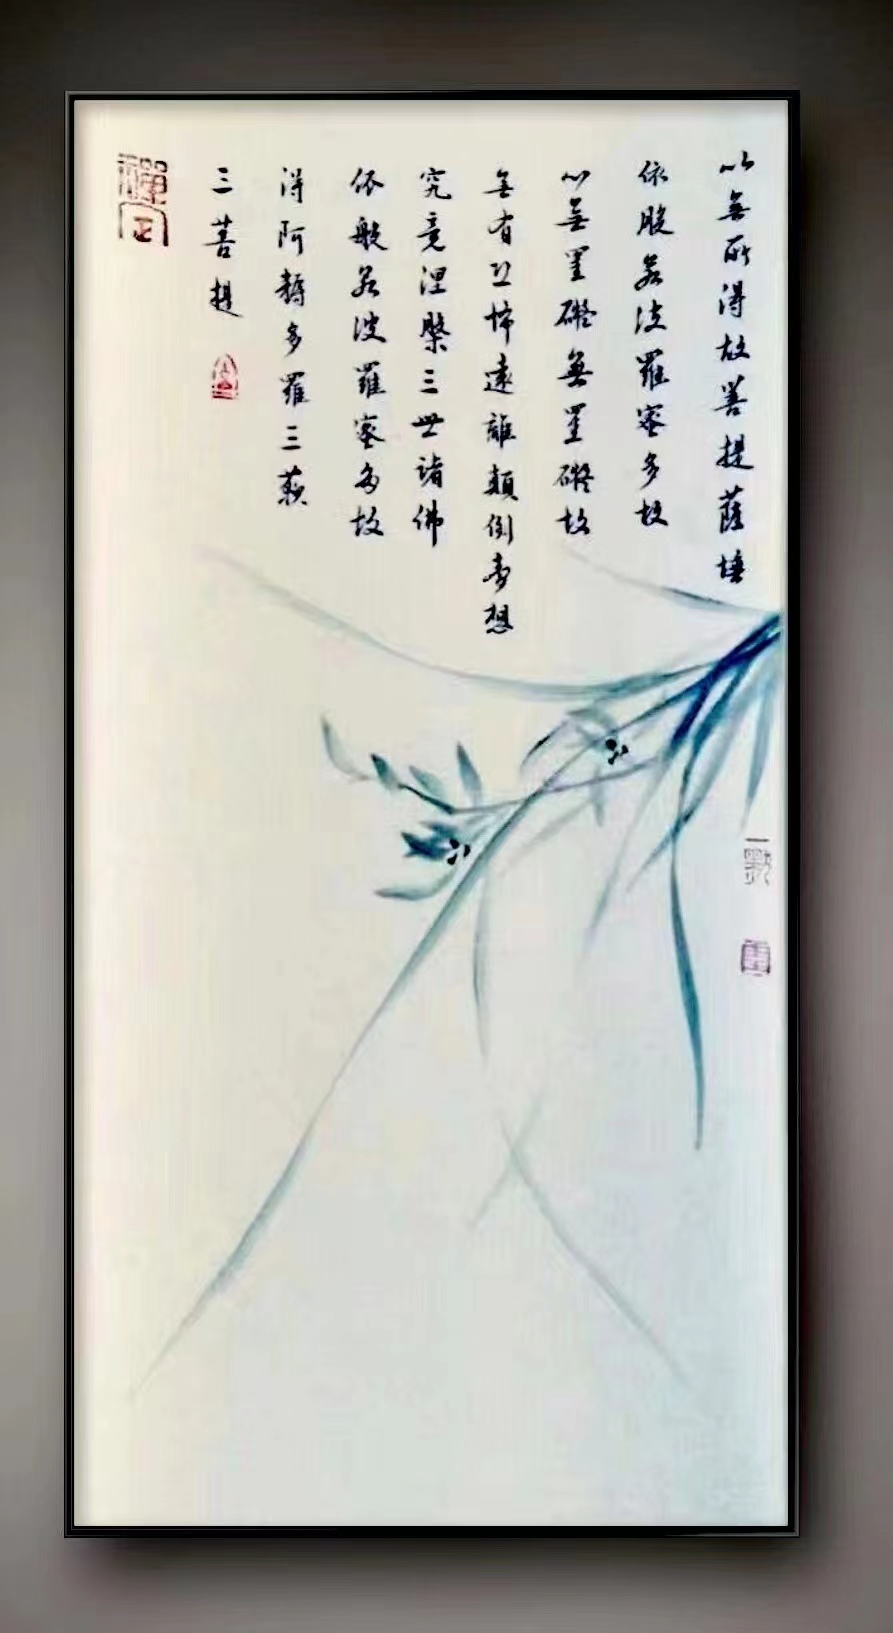 以無所得故菩提薩埵
依般若波羅蜜多故
心無罣礙無罣礙故
無有恐怖遠離顛倒夢想
究竟涅槃三世諸佛
依般若波羅蜜多故
得阿耨多羅三藐
三菩提
禪定